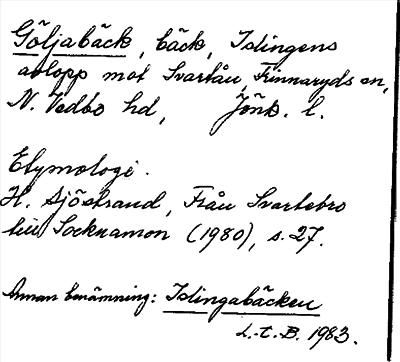 Göljabäck, bäck, Islingens
avlopp mot Svartån, Finnaryds sn,
N. Vedbo hd, Jönk. l.
Etymologi.
H. Sjöstrand, Från Svartebro
till Socknamon (1980), s. 27.
Annan benämning: Islingabäcken
L.-E. B. 1983.